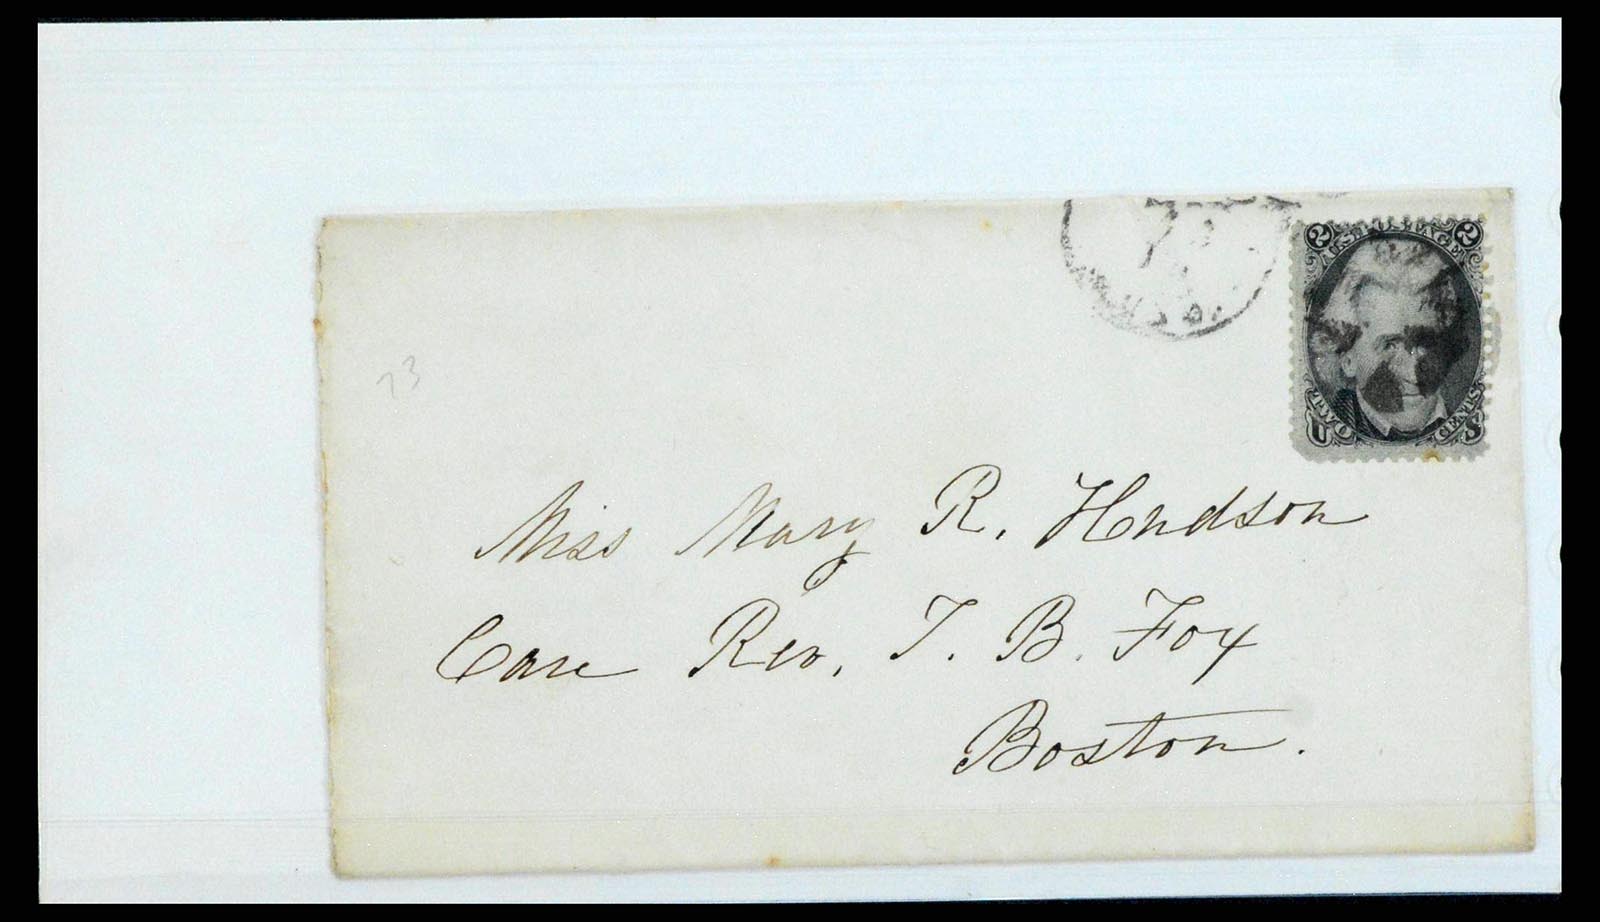 2 U.S. POSTAGE 2
TWO CENTS
U S
73
Miss Mary R. Hudson
Care Rev. T. B. Fox
Boston.